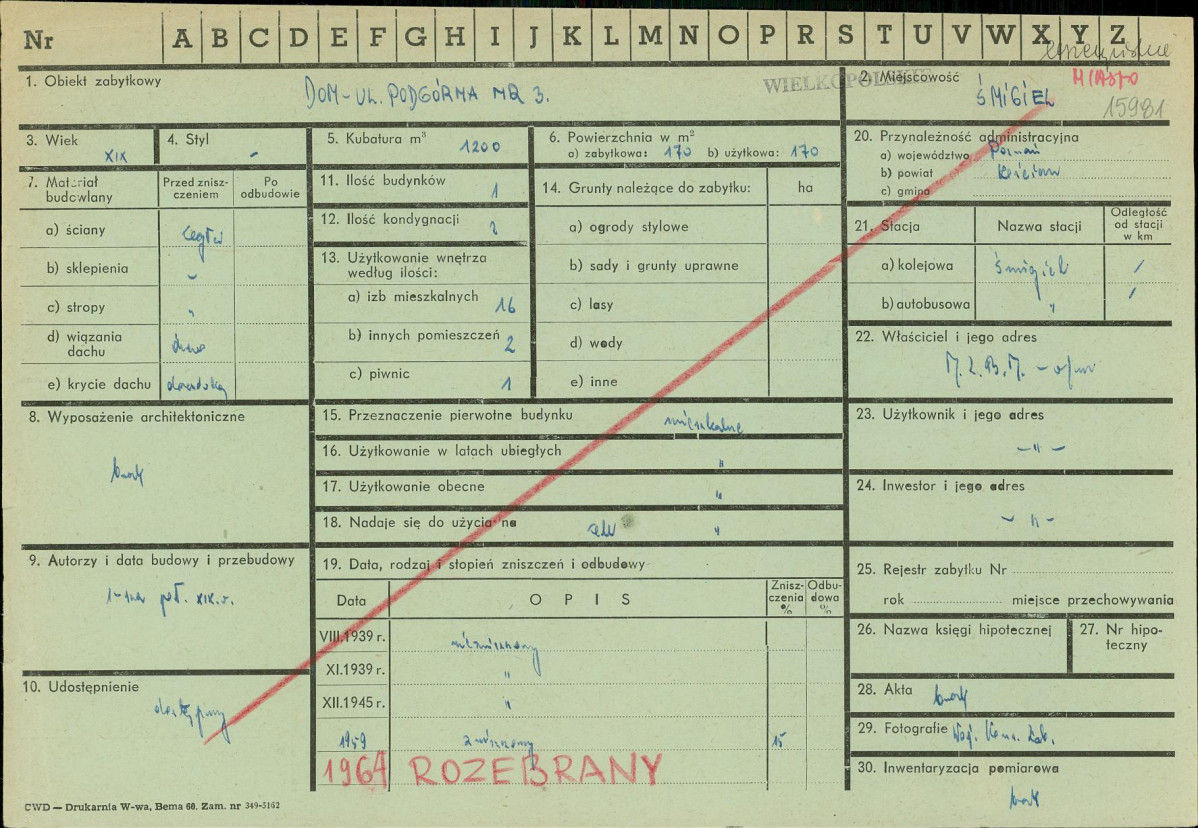 Nr A B C D E F G H I J K L M N O P R S T U V W X Y Z
1. Obiekt zabytkowy
DOM - UL. PODGÓRNA NR 3.
WIELKOPOLSKIE
2. Miejscowość
MIASTO
ŚMIGIEL
15981
3. Wiek
XIX
4. Styl
-
5. Kubatura m³ 1200
6. Powierzchnia w m²
a) zabytkowa: 170 b) użytkowa: 170
20. Przynależność administracyjna
a) województwo Poznań
b) powiat Kościan
c) gmina
7. Materiał budowlany
Przed znisz-
czeniem
Po
odbudowie
a) ściany cegła
b) sklepienia -
c) stropy "
d) wiązania
dachu
e) krycie dachu dachówka
11. Ilość budynków 1
12. Ilość kondygnacji 2
13. Użytkowanie wnętrza
według ilości:
a) izb mieszkalnych 16
b) innych pomieszczeń 2
c) piwnic 1
14. Grunty należące do zabytku: ha
a) ogrody stylowe
b) sady i grunty uprawne
c) lasy
d) wody
e) inne
21. Stacja Nazwa stacji
Odległość
od stacji
w km
a) kolejowa Śmigiel /
b) autobusowa " /
22. Właściciel i jego adres
8. Wyposażenie architektoniczne
brak
15. Przeznaczenie pierwotne budynku mieszkalne
16. Użytkowanie w latach ubiegłych "
17. Użytkowanie obecne "
18. Nadaje się do użycia na cele "
23. Użytkownik i jego adres
- " -
24. Inwestor i jego adres
- " -
9. Autorzy i data budowy i przebudowy
1-sza poł. XIX. w.
19. Data, rodzaj i stopień zniszczeń i odbudowy
Data OPIS
Znisz-
czenia
%
Odbu-
dowa
%
VIII.1939 r. niezniszczony
XI.1939 r. "
XII.1945 r. "
1959 zniszczony 15
1964 ROZEBRANY
25. Rejestr zabytku Nr
rok miejsce przechowywania
26. Nazwa księgi hipotecznej
27. Nr hipo-
teczny
10. Udostępnienie
dostępny
28. Akta brak
29. Fotografie Woj. Kons. Zab.
30. Inwentaryzacja pomiarowa
brak
CWD — Drukarnia W-wa, Bema 60. Zam. nr 349-3162